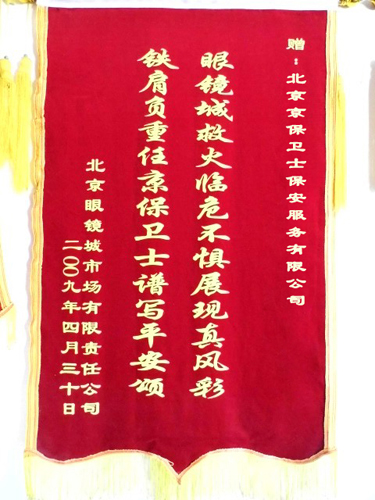 赠：北京京保卫士保安服务有限公司
眼镜城救火临危不惧展现真风彩
铁肩负重任京保卫士谱写平安颂
北京眼镜城市场有限责任公司
二〇〇九年四月三十日